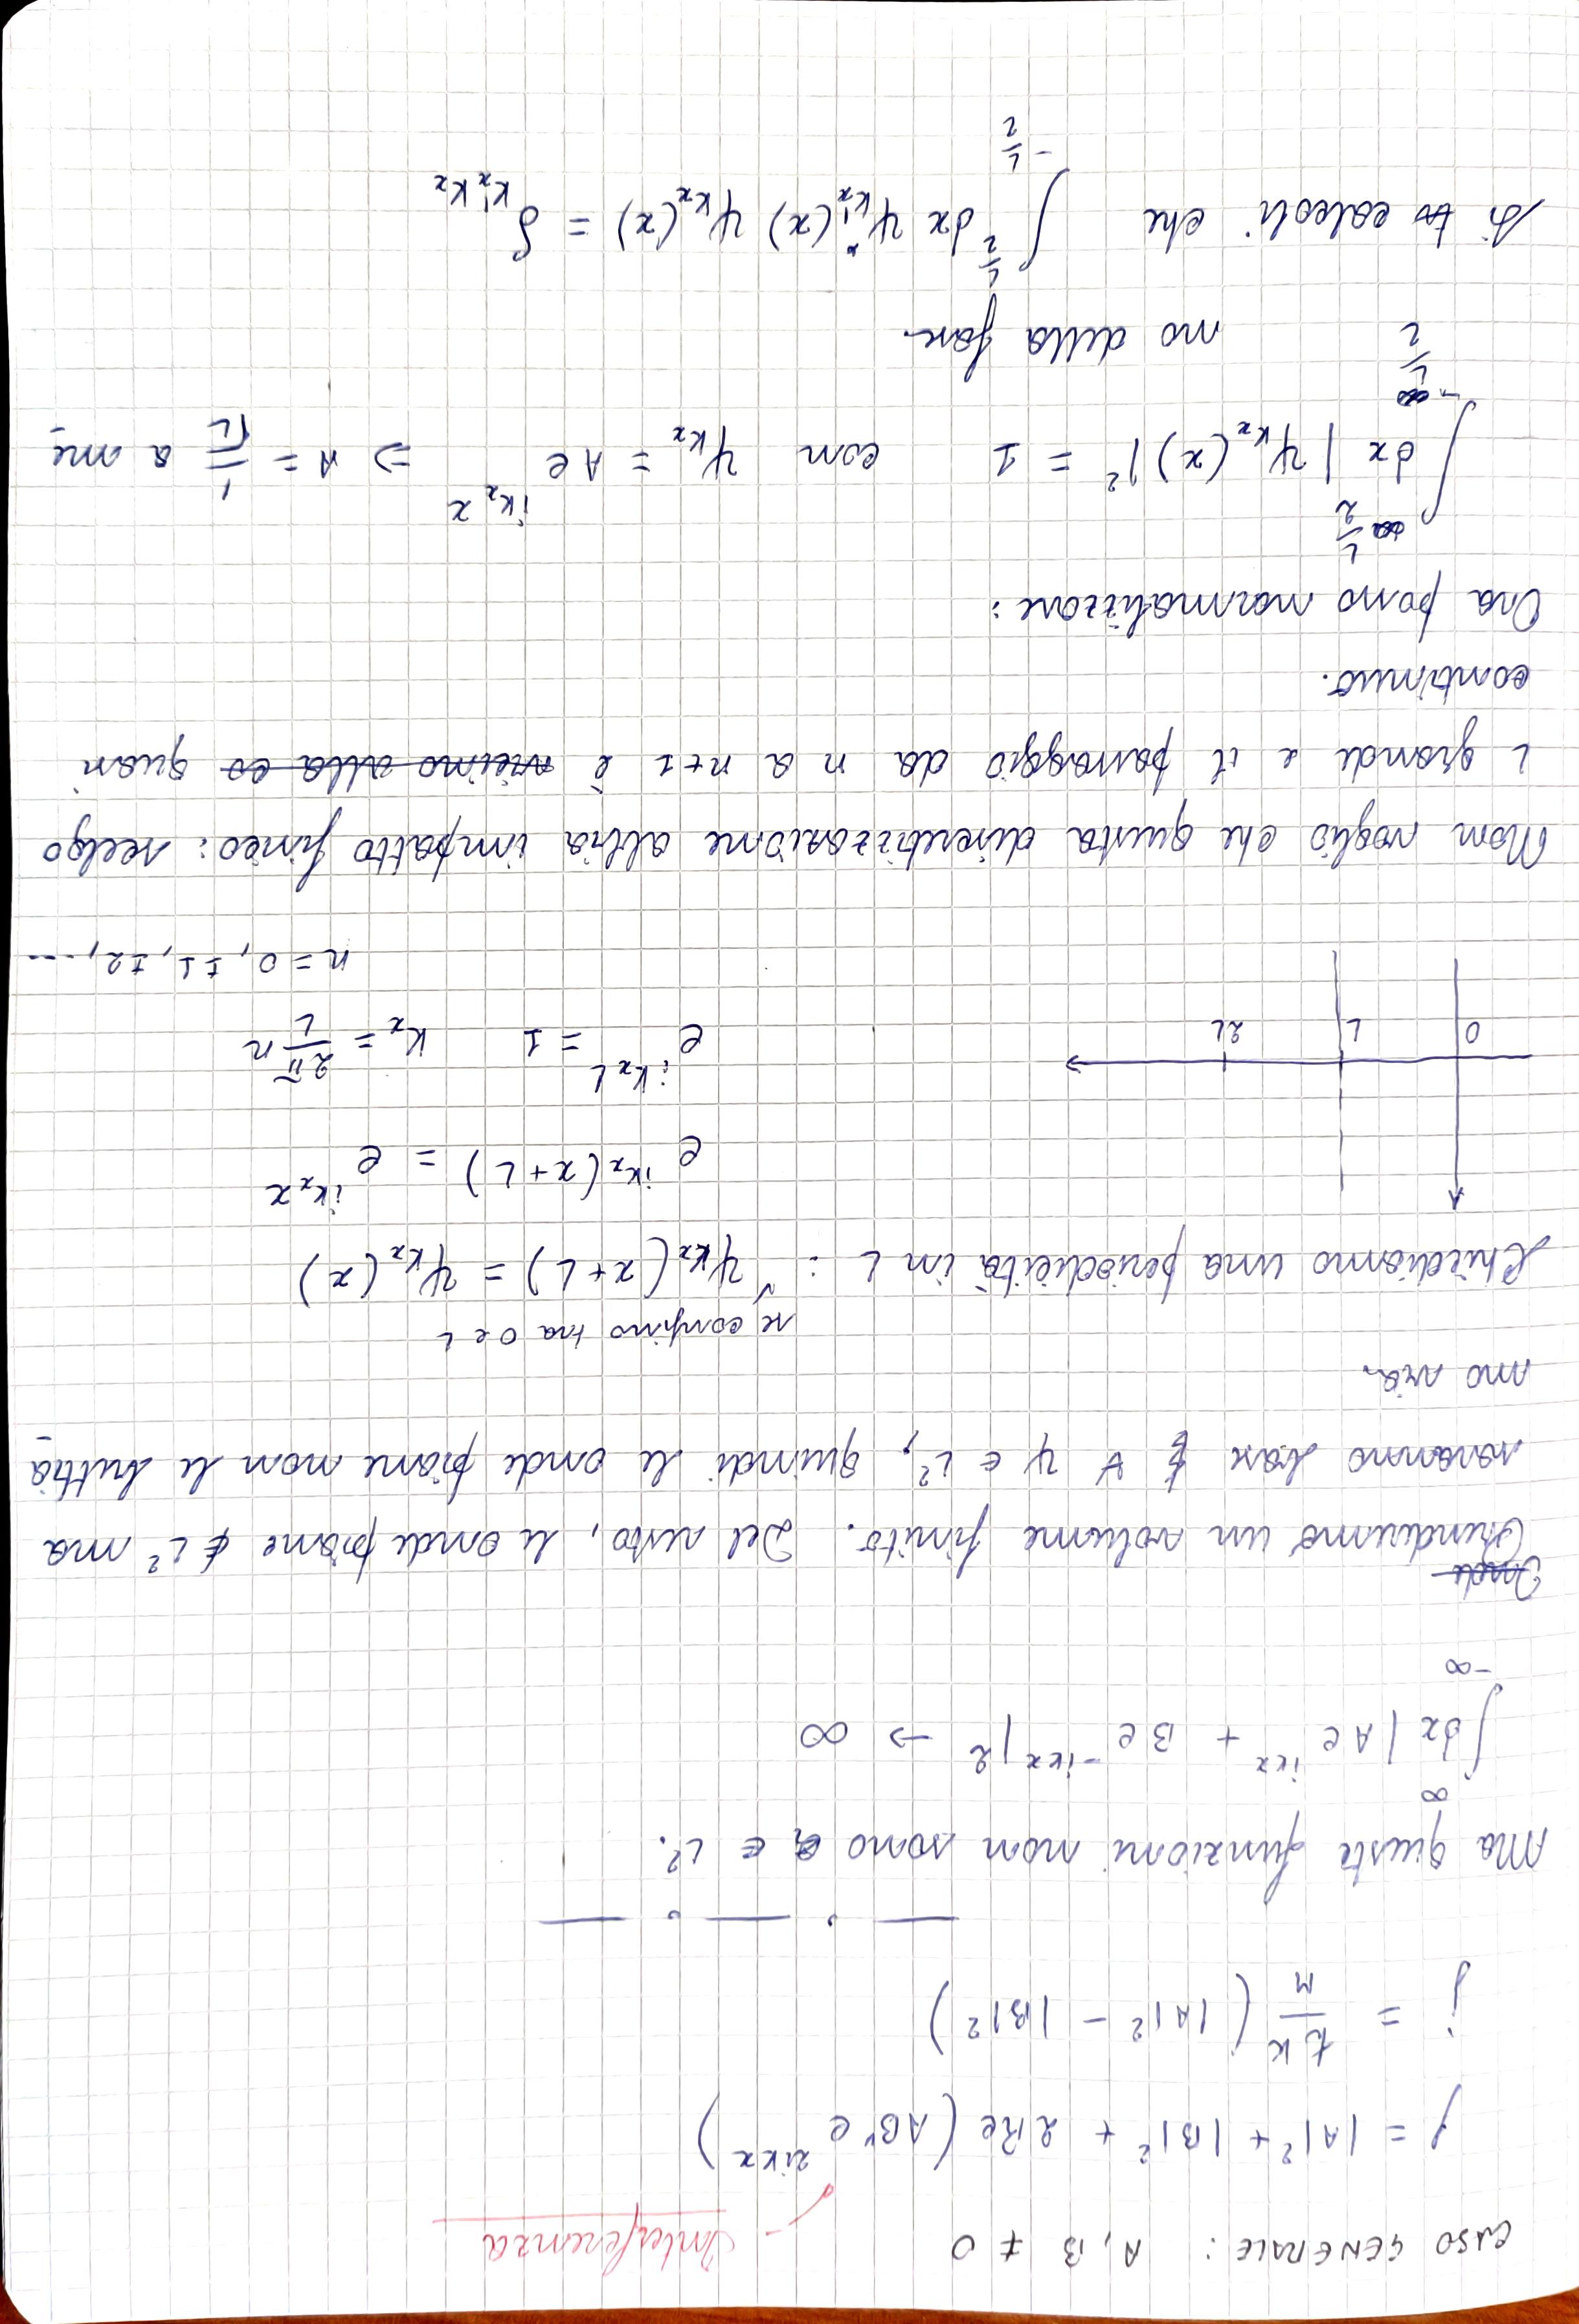 CASO GENERALE: A, B ≠ 0 Interferenza
ρ = |A|² + |B|² + 2Re (AB* e^{2ikx})
j = ħk/m (|A|² - |B|²)
Ma queste funzioni non sono ∈ L².
∫_{-∞}^{∞} dx |A e^{ikx} + B e^{-ikx}|² → ∞
Prendiamo un volume finito. Del resto, le onde piane ∉ L² ma
saranno base ∀ ψ ∈ L², quindi le onde piane non le buttia
mo via.
se confino tra 0 e L
Chiediamo una periodicità in L : ψ_{kx}(x+L) = ψ_{kx}(x)
e^{ikx(x+L)} = e^{ikx x}
0 L 2L
e^{ikx L} = 1 kx = 2π/L n
n = 0, ±1, ±2, ...
Non voglio che questa discretizzazione abbia impatto fisico: scelgo
L grande e il passaggio da n a n+1 è quasi
continuo.
Ora posso normalizzare:
∫_{-L/2}^{L/2} dx |ψ_{kx}(x)|² = 1 con ψ_{kx} = A e^{ikx x} ⇒ A = 1/√L a me
no della fase.
Si calcoli che ∫_{-L/2}^{L/2} dx ψ*_{k'x}(x) ψ_{kx}(x) = δ_{k'x kx}